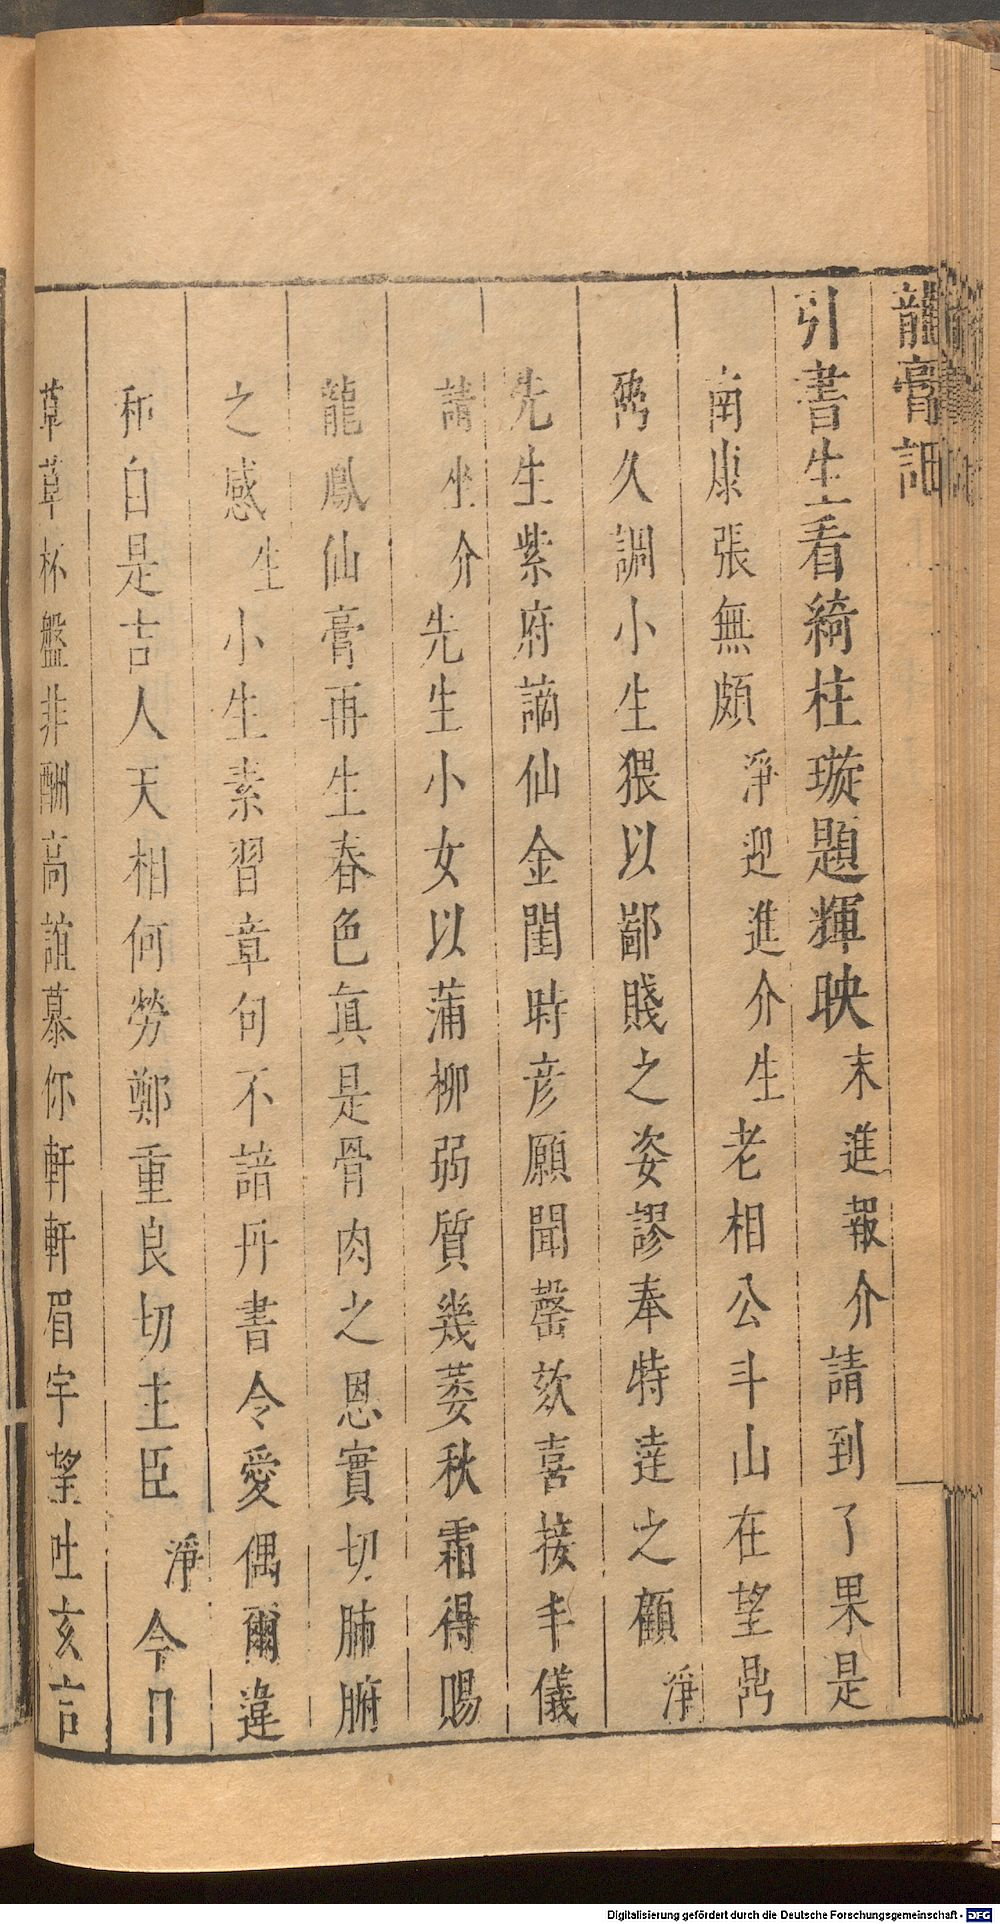 龍膏記
引書生看綺柱璇題輝映末進報介請到了果是
南康張無頗淨迎進介生老相公斗山在望鼎
鼐久調小生猥以鄙賤之姿謬奉特達之顧淨
先生紫府謫仙金閨時彦願聞罄欬喜接丰儀
請坐介先生小女以蒲柳弱質幾萎秋霜得賜
龍鳳仙膏再生春色眞是骨肉之恩實切肺腑
之感生小生素習章句不諳丹書令愛偶爾違
和自是吉人天相何勞鄭重良切主臣淨今日
草草杯盤非酬高誼慕你軒軒眉宇望吐玄言
Digitalisierung gefördert durch die Deutsche Forschungsgemeinschaft - DFG